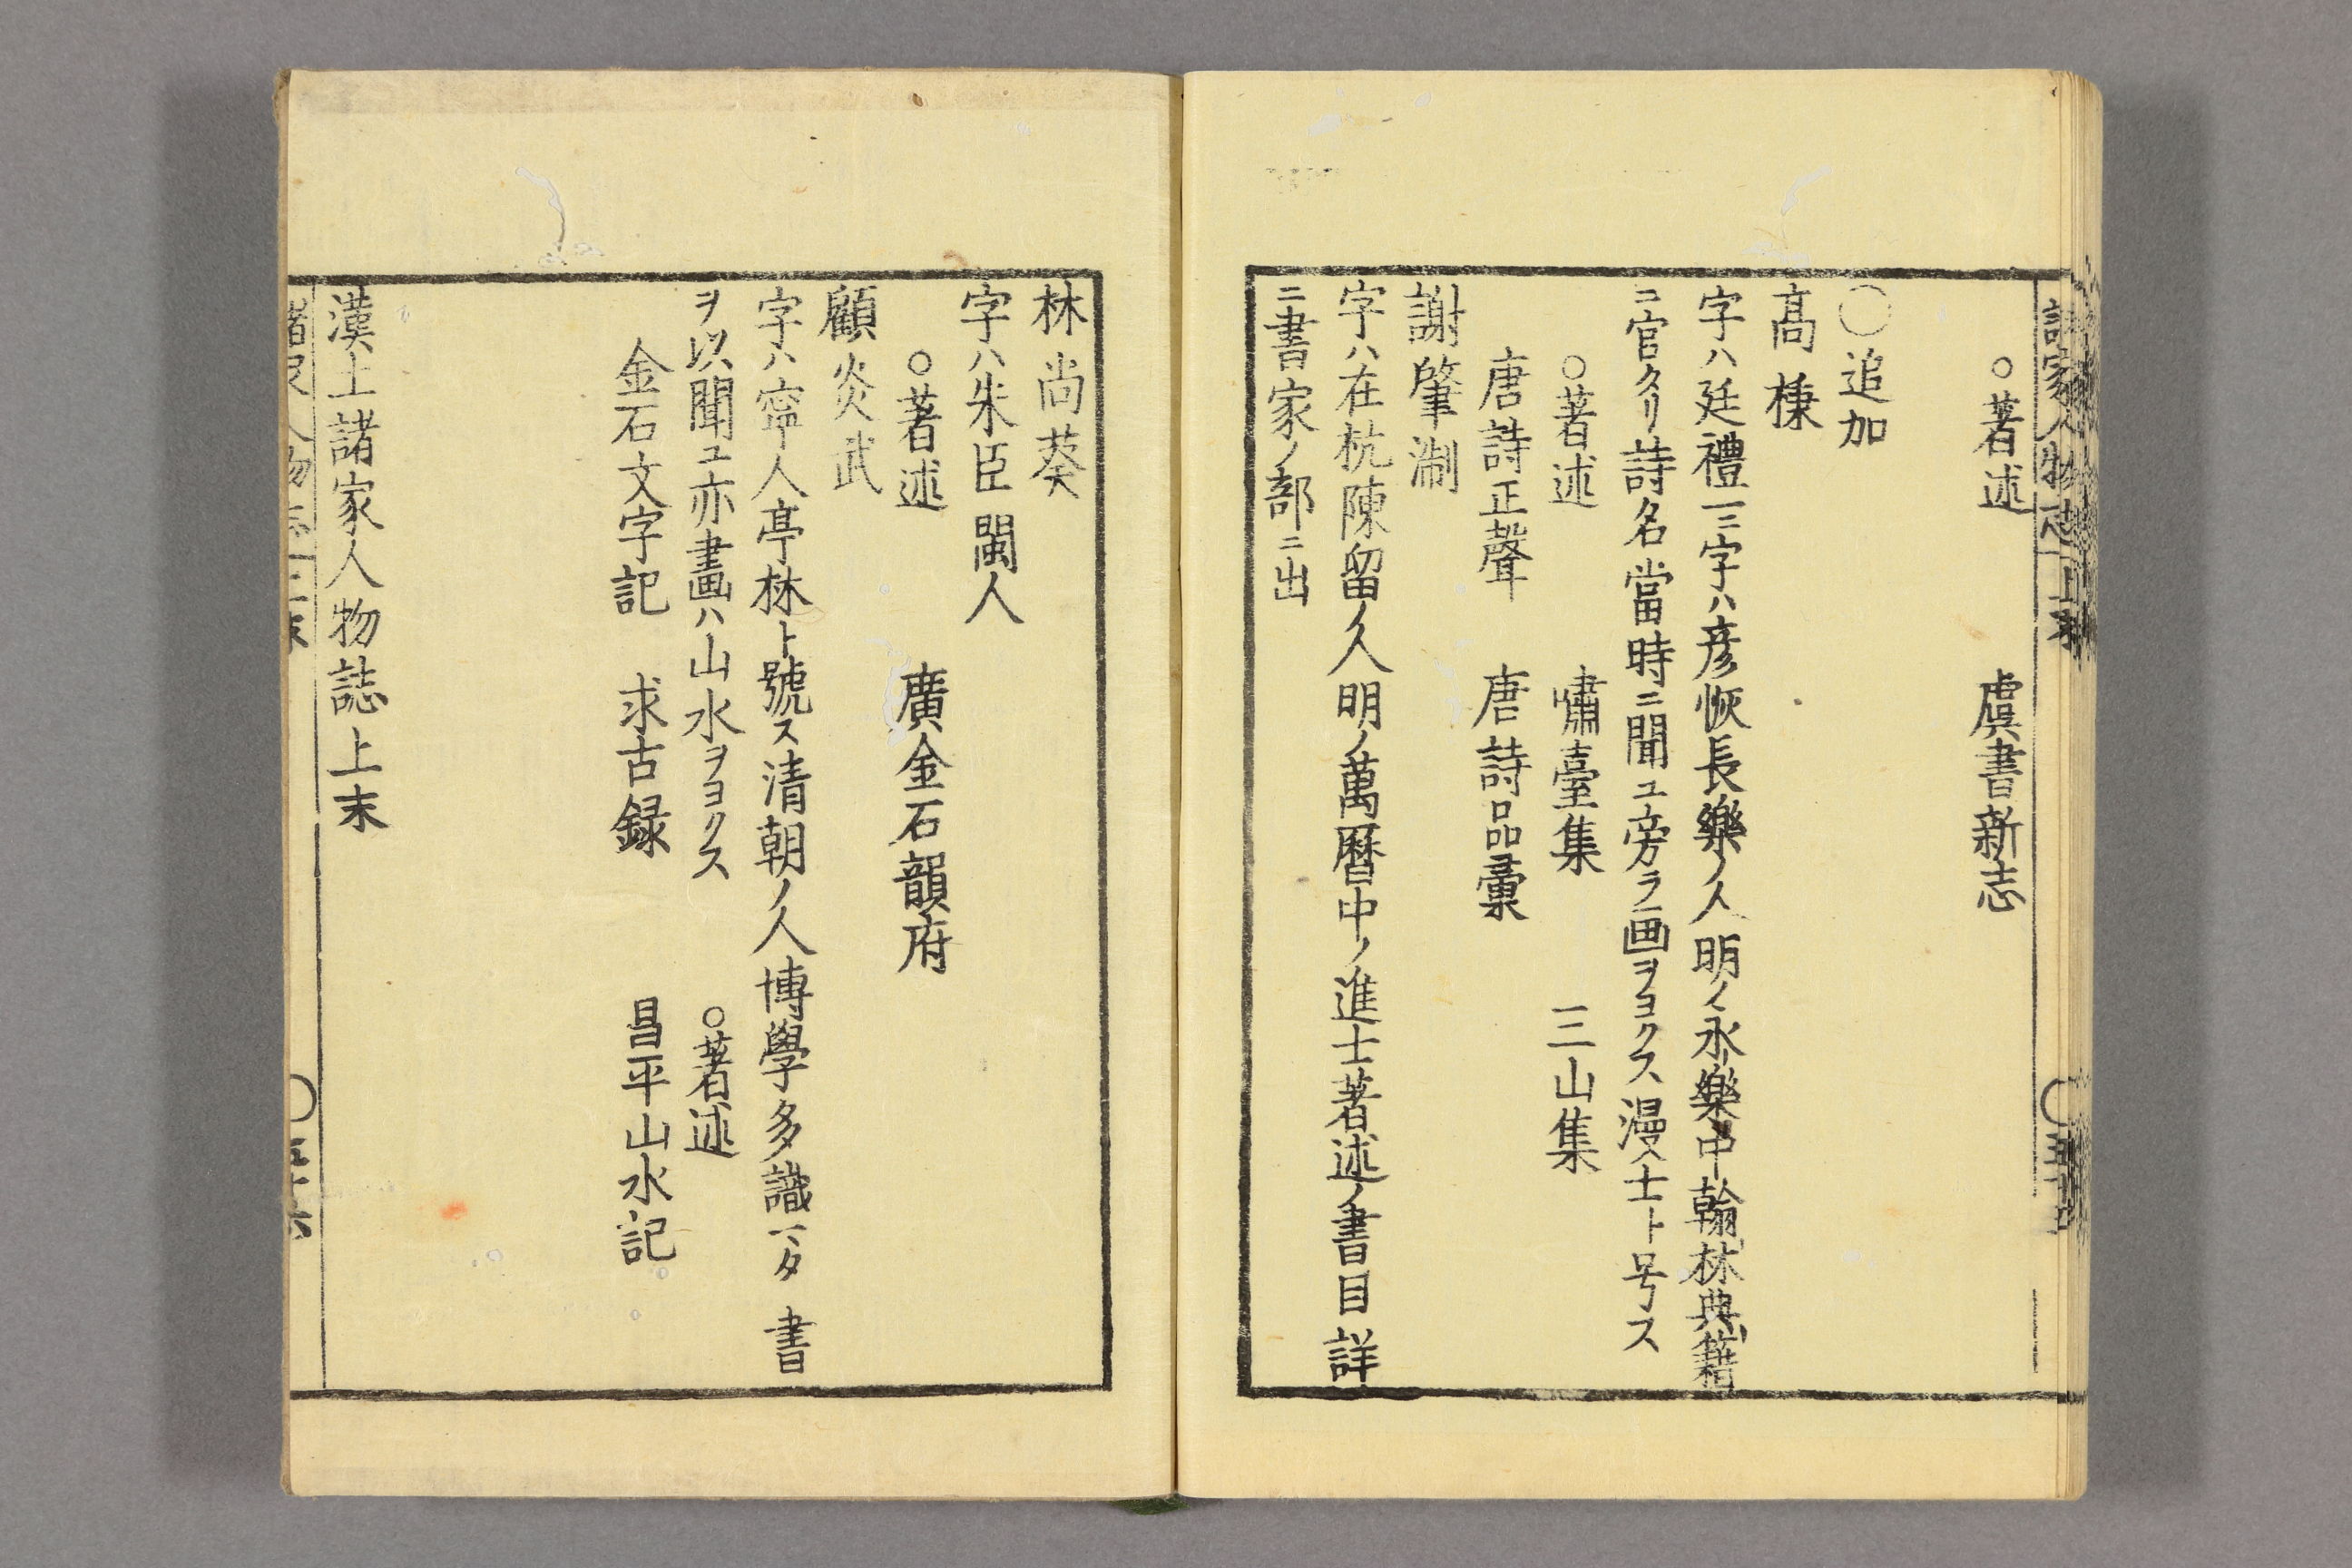 ○著述　虞書新志
○追加
高棅
字ハ廷禮一ニ字ハ彦恢長樂ノ人明ノ永樂中翰林典籍
ニ官タリ詩名當時ニ聞ユ旁ラ画ヲヨクス漫士ト号ス
○著述　嘯臺集　三山集
唐詩正聲　唐詩品彙
謝肇淛
字ハ在杭陳留ノ人明ノ萬曆中ノ進士著述ノ書目詳
ニ書家ノ部ニ出
林尚葵
字ハ朱臣閩人
○著述　廣金石韻府
顧炎武
字ハ寧人亭林ト號ス清朝ノ人博學多識マタ書
ヲ以聞ユ亦畫ハ山水ヲヨクス　○著述
金石文字記　求古録　昌平山水記
漢土諸家人物誌上末